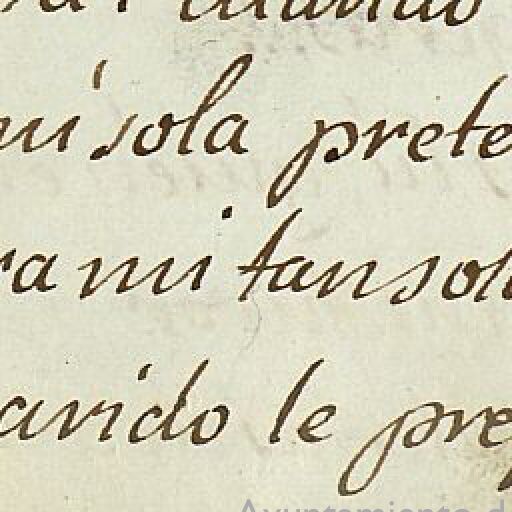 mi sola prete
ra mi tan sol
arido le pre
Ayuntamiento d